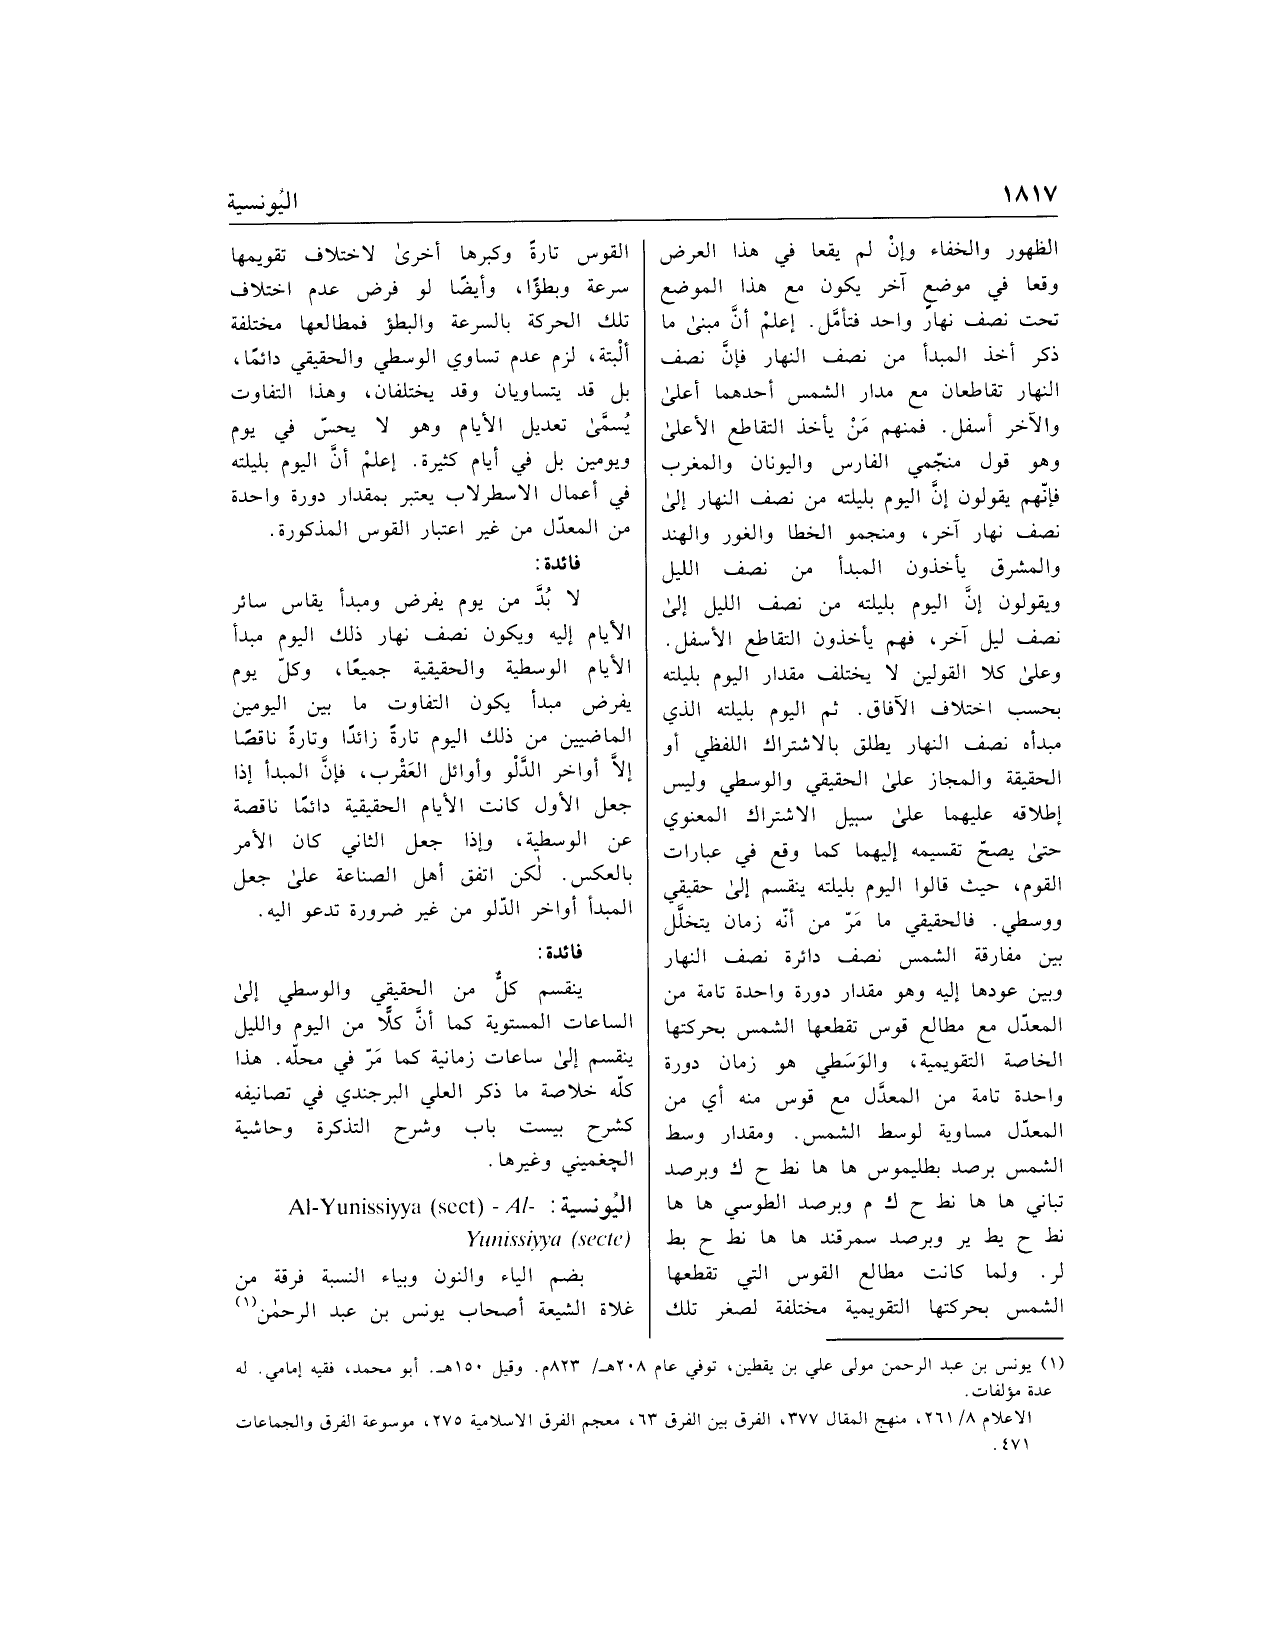 ١٨١٧
اليُونسية
الظهور والخفاء وإنْ لم يقعا في هذا العرض
وقعا في موضعٍ آخر يكون مع هذا الموضع
تحت نصف نهار واحد فتأمَّل. إعلمْ أنَّ مبنىٰ ما
ذكر أخذ المبدأ من نصف النهار فإنَّ نصف
النهار تقاطعان مع مدار الشمس أحدهما أعلىٰ
والآخر أسفل. فمنهم مَنْ يأخذ التقاطع الأعلىٰ
وهو قول منجّمي الفارس واليونان والمغرب
فإنّهم يقولون إنَّ اليوم بليلته من نصف النهار إلىٰ
نصف نهار آخر، ومنجمو الخطا والغور والهند
والمشرق يأخذون المبدأ من نصف الليل
ويقولون إنَّ اليوم بليلته من نصف الليل إلىٰ
نصف ليل آخر، فهم يأخذون التقاطع الأسفل.
وعلىٰ كلا القولين لا يختلف مقدار اليوم بليلته
بحسب اختلاف الآفاق. ثم اليوم بليلته الذي
مبدأه نصف النهار يطلق بالاشتراك اللفظي أو
الحقيقة والمجاز علىٰ الحقيقي والوسطي وليس
إطلاقه عليهما علىٰ سبيل الاشتراك المعنوي
حتىٰ يصحّ تقسيمه إليهما كما وقع في عبارات
القوم، حيث قالوا اليوم بليلته ينقسم إلىٰ حقيقي
ووسطي. فالحقيقي ما مَرّ من أنّه زمان يتخلَّل
بين مفارقة الشمس نصف دائرة نصف النهار
وبين عودها إليه وهو مقدار دورة واحدة تامة من
المعدّل مع مطالع قوس تقطعها الشمس بحركتها
الخاصة التقويمية، والوَسَطي هو زمان دورة
واحدة تامة من المعدَّل مع قوس منه أي من
المعدّل مساوية لوسط الشمس. ومقدار وسط
الشمس برصد بطليموس ها ها نط ح ك وبرصد
تباني ها ها نط ح ك م وبرصد الطوسي ها ها
نط ح يط ير وبرصد سمرقند ها ها نط ح بط
لر. ولما كانت مطالع القوس التي تقطعها
الشمس بحركتها التقويمية مختلفة لصغر تلك
القوس تارةً وكبرها أخرىٰ لاختلاف تقويمها
سرعة وبطؤًا، وأيضًا لو فرض عدم اختلاف
تلك الحركة بالسرعة والبطؤ فمطالعها مختلفة
ألْبتة، لزم عدم تساوي الوسطي والحقيقي دائمًا،
بل قد يتساويان وقد يختلفان، وهذا التفاوت
يُسمَّىٰ تعديل الأيام وهو لا يحسّ في يوم
ويومين بل في أيام كثيرة. إعلمْ أنَّ اليوم بليلته
في أعمال الاسطرلاب يعتبر بمقدار دورة واحدة
من المعدّل من غير اعتبار القوس المذكورة.
فائدة:
لا بُدَّ من يوم يفرض ومبدأ يقاس سائر
الأيام إليه ويكون نصف نهار ذلك اليوم مبدأ
الأيام الوسطية والحقيقية جميعًا، وكلّ يوم
يفرض مبدأ يكون التفاوت ما بين اليومين
الماضيين من ذلك اليوم تارةً زائدًا وتارةً ناقصًا
إلاَّ أواخر الدَّلْو وأوائل العَقْرب، فإنَّ المبدأ إذا
جعل الأول كانت الأيام الحقيقية دائمًا ناقصة
عن الوسطية، وإذا جعل الثاني كان الأمر
بالعكس. لٰكن اتفق أهل الصناعة علىٰ جعل
المبدأ أواخر الدّلو من غير ضرورة تدعو اليه.
فائدة:
ينقسم كلٌّ من الحقيقي والوسطي إلىٰ
الساعات المستوية كما أنَّ كلًّا من اليوم والليل
ينقسم إلىٰ ساعات زمانية كما مَرّ في محلّه. هذا
كلّه خلاصة ما ذكر العلي البرجندي في تصانيفه
كشرح بيست باب وشرح التذكرة وحاشية
الچغميني وغيرها.
اليُونسية: Al-Yunissiyya (sect) - Al-
Yunissiyya (secte)
بضم الياء والنون وبياء النسبة فرقة من
غلاة الشيعة أصحاب يونس بن عبد الرحمٰن(١)
(١) يونس بن عبد الرحمن مولى علي بن يقطين، توفي عام ٢٠٨هـ/ ٨٢٣م. وقيل ١٥٠هـ. أبو محمد، فقيه إمامي. له
عدة مؤلفات.
الاعلام ٨/ ٢٦١، منهج المقال ٣٧٧، الفرق بين الفرق ٦٣، معجم الفرق الاسلامية ٢٧٥، موسوعة الفرق والجماعات
٤٧١.